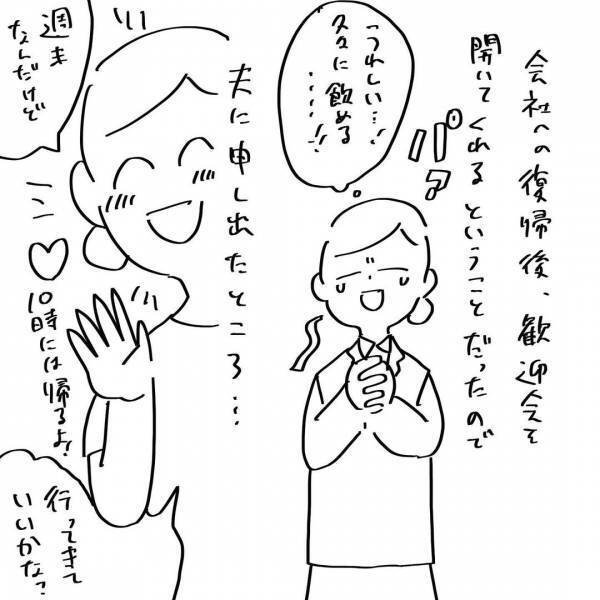 会社への復帰後、歓迎会を
開いてくれるということだったので
パァ
うれしい…!
久々に飲める
……!!
夫に申し出たところ…
週末
なんだけど
10時には帰るよ!
行ってきて
いいかな?